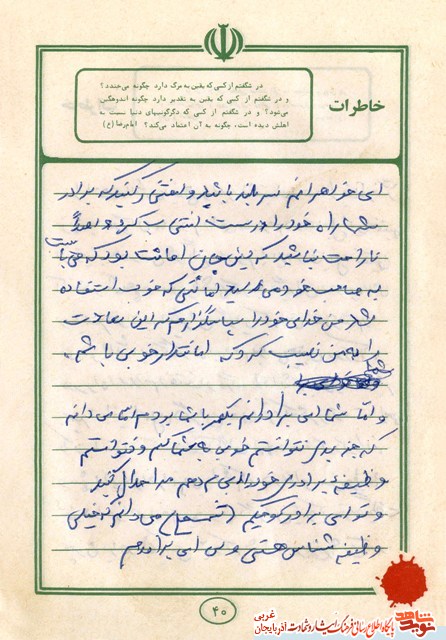 خاطرات
در شگفتم از کسی که یقین به مرگ دارد چگونه می‌خندد؟
و در شگفتم از کسی که یقین به تقدیر دارد چگونه اندوهگین
می‌شود؟ و در شگفتم از کسی که دگرگونیهای دنیا نسبت به
اهلش دیده است، چگونه به آن اعتماد می‌کند؟ امام رضا (ع)
ای خواهرانم سربلند باشید و افتخار کنید که برادر
شما راه خود را درست انتخاب کرد و اصلاً
ناراحت نباشید که این جان امانت بود که می‌بایست
به صاحب خود می‌رسید امانتی که خوب استفاده
شد من خدای خود را سپاسگزارم که این سعادت
را به من نصیب کرد که امانتدار خوبی باشم.
و اما شما ای برادرانم یکعمر با شما بودم اما می‌دانم
که جز بدی نتوانستم خوبی به شما کنم و نتوانستم
وظیفهٔ برادری خود را انجام دهم مرا حلال کنید
و تو ای برادر کوچکم می‌دانم که خیلی
وظیفه شناس هستی و پس ای برادرم
۴۰
شاهد
نوید
پایگاه اطلاع رسانی فرهنگ ایثار و شهادت آذربایجان غربی